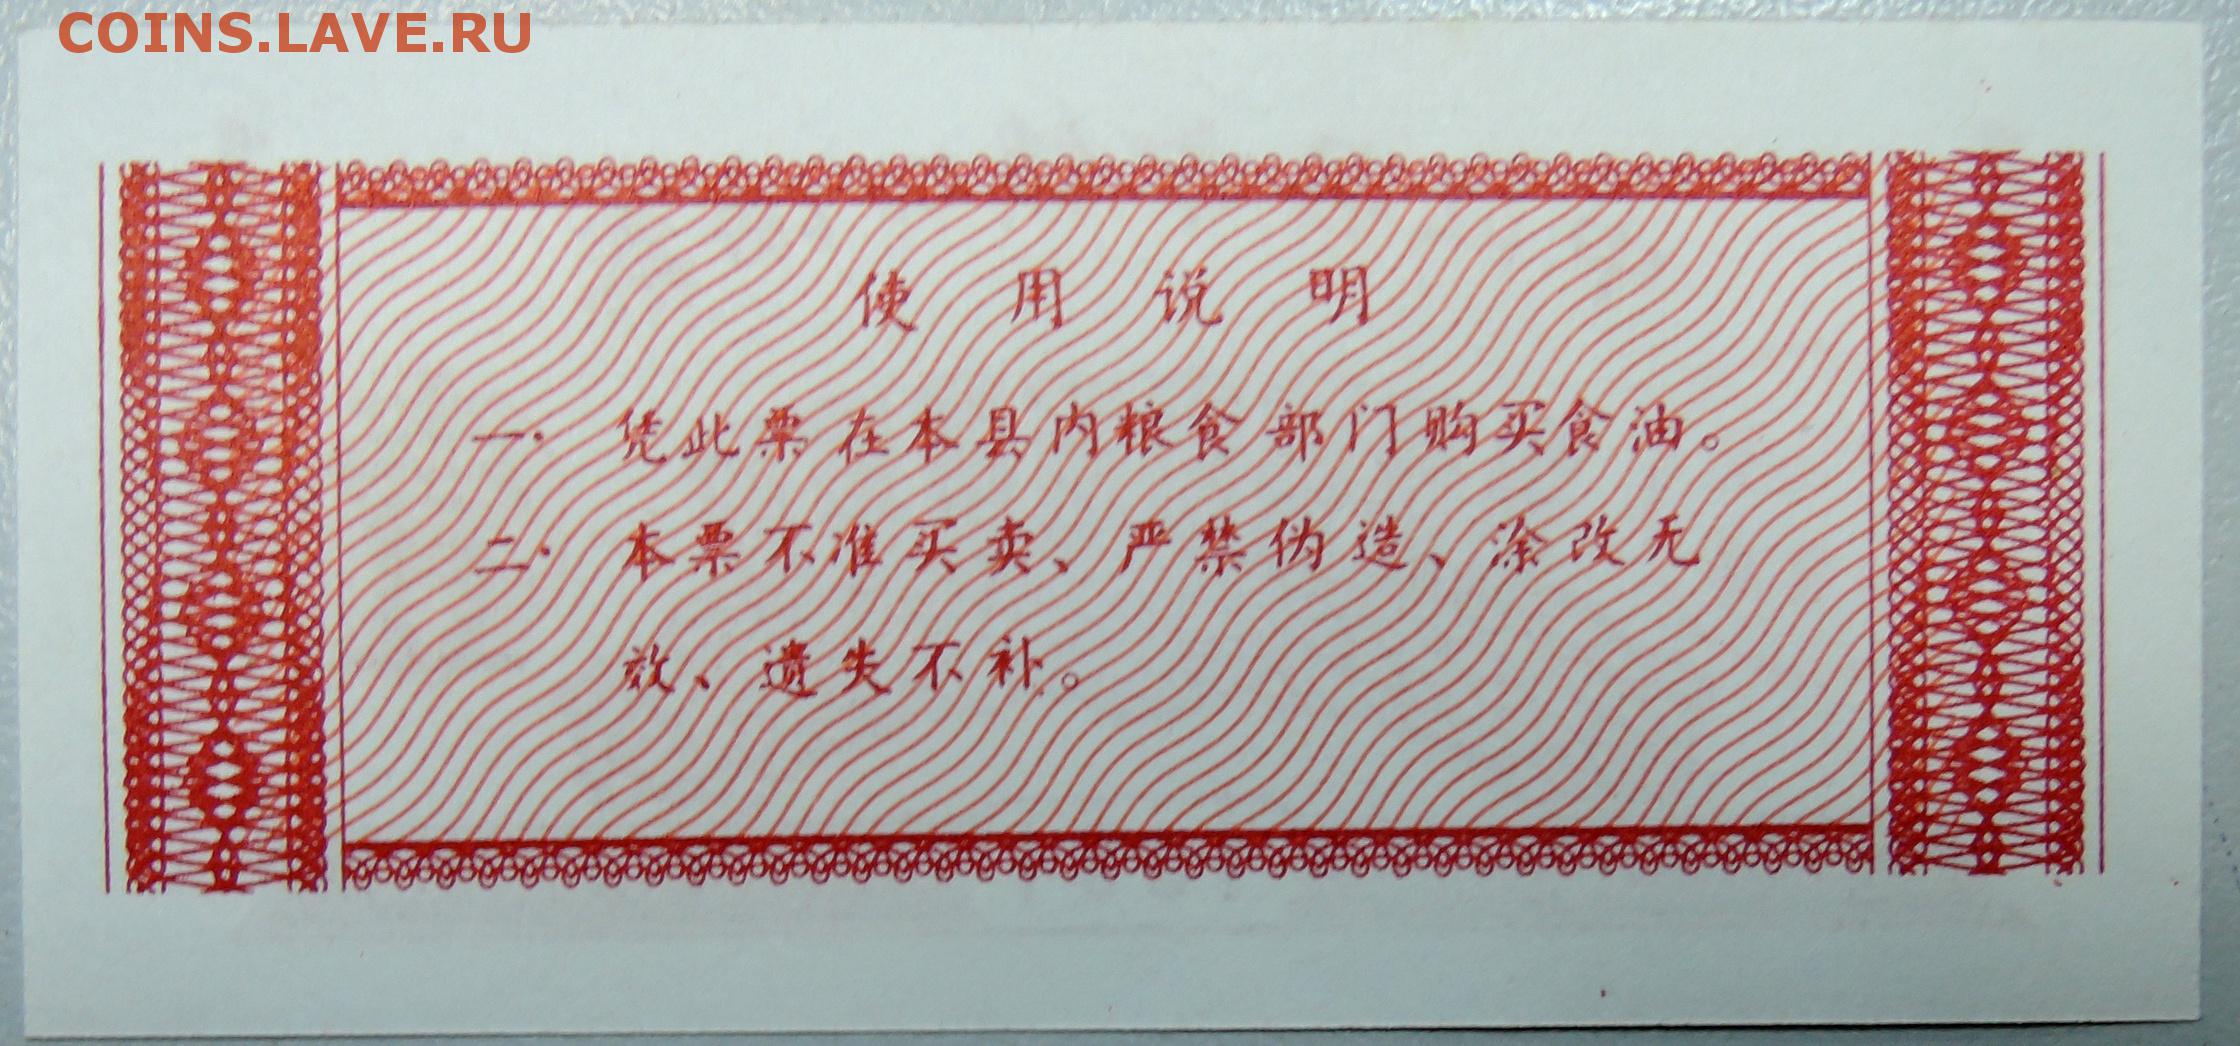 COINS.LAVE.RU
使用说明
一. 凭此票在本县内粮食部门购买食油。
二. 本票不准买卖、严禁伪造、涂改无
效、遗失不补。